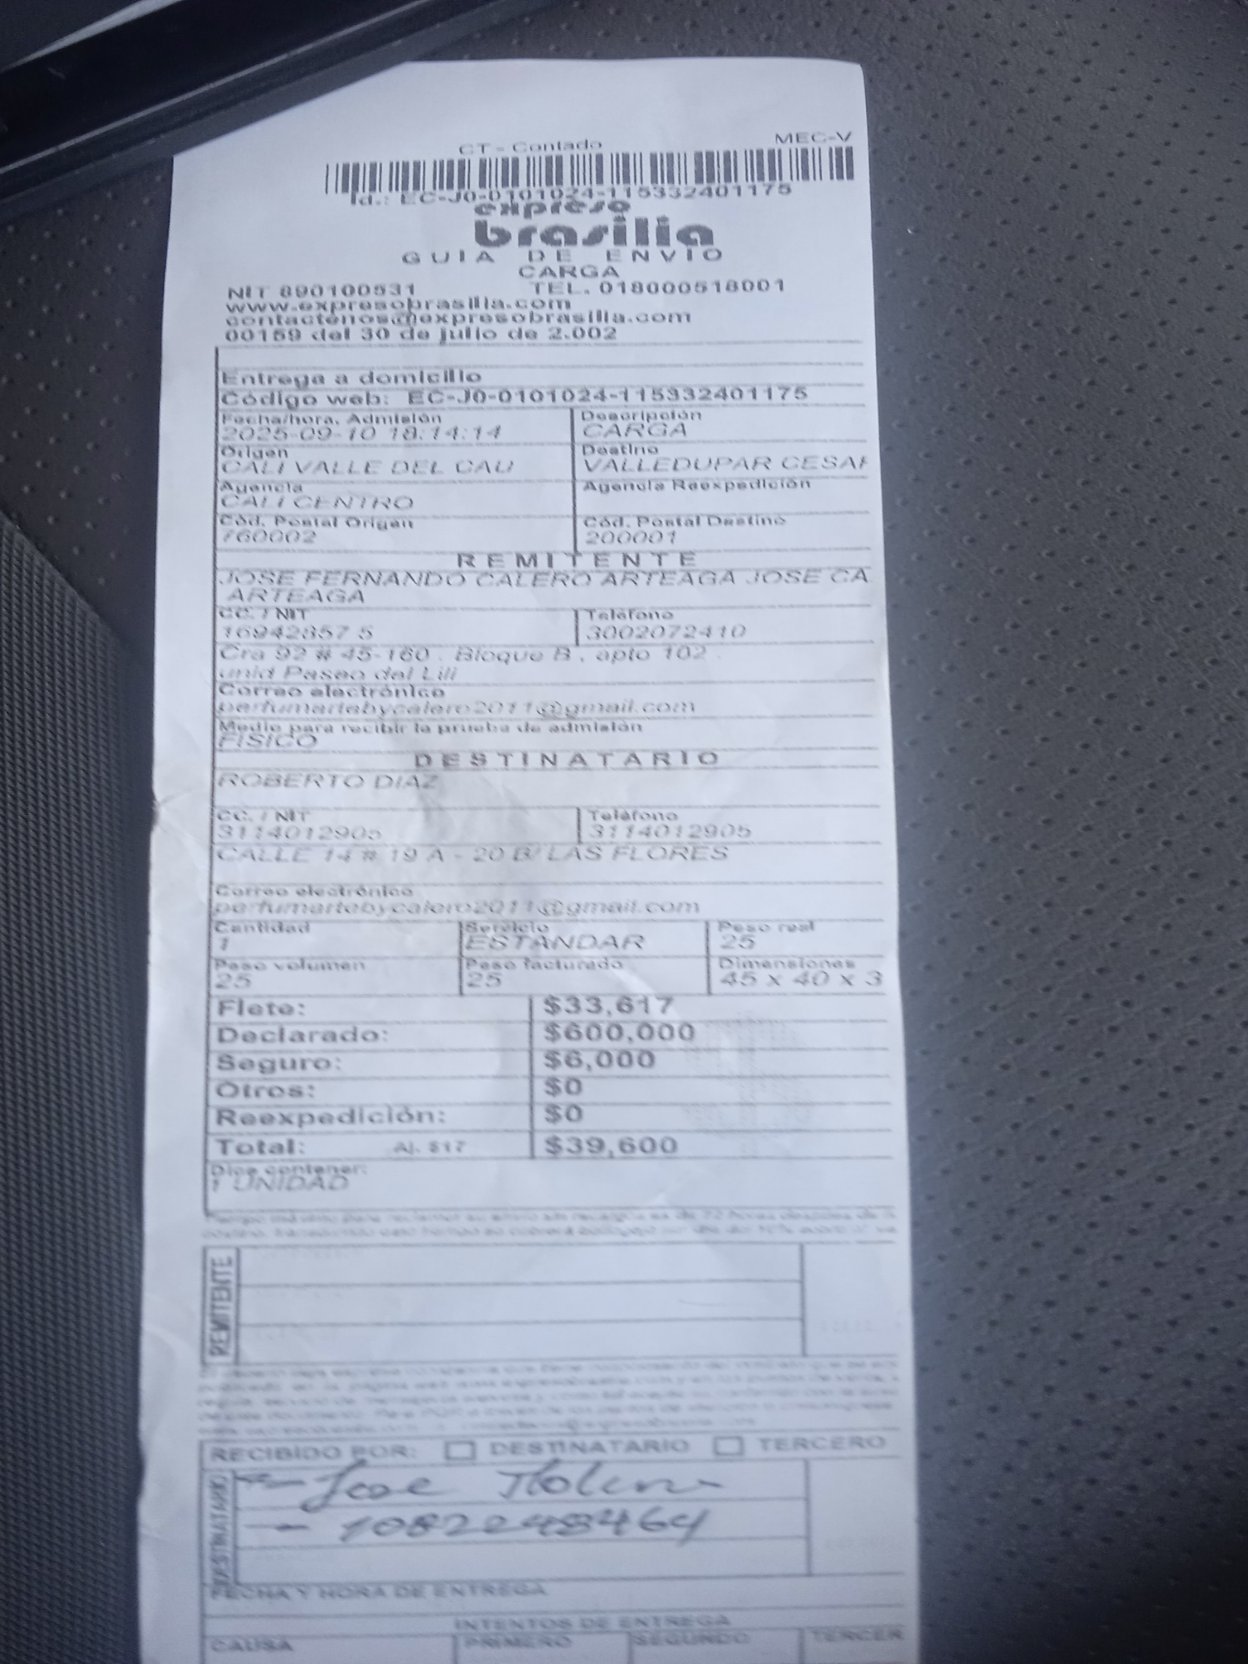 CT - Contado MEC-V
Id.: EC-J0-0101024-115332401175
expreso
brasilia
GUIA DE ENVIO
CARGA
NIT 890100531 TEL. 018000518001
www.expresobrasilia.com
contactenos@expresobrasilia.com
00159 del 30 de julio de 2.002
Entrega a domicilio
Código web: EC-J0-0101024-115332401175
Fecha/hora. Admisión Descripción
2025-09-10 18:14:14 CARGA
Origen Destino
CALI VALLE DEL CAU VALLEDUPAR CESAR
Agencia Agencia Reexpedición
CALI CENTRO
Cód. Postal Origen Cód. Postal Destino
760002 200001
REMITENTE
JOSE FERNANDO CALERO ARTEAGA JOSE CA
ARTEAGA
CC. / NIT Teléfono
16942857 5 3002072410
Cra 92 # 45-160 . Bloque B , apto 102 .
unid Paseo del Lili
Correo electrónico
perfumartebycalero2011@gmail.com
Medio para recibir la prueba de admisión
FISICO
DESTINATARIO
ROBERTO DIAZ
CC. / NIT Teléfono
3114012905 3114012905
CALLE 14 # 19 A - 20 B/ LAS FLORES
Correo electrónico
perfumartebycalero2011@gmail.com
Cantidad Servicio Peso real
1 ESTANDAR 25
Peso volumen Peso facturado Dimensiones
25 25 45 x 40 x 3
Flete: $33,617
Declarado: $600,000
Seguro: $6,000
Otros: $0
Reexpedición: $0
Total: Aj. $17 $39,600
Dice contener:
1 UNIDAD
REMITENTE
RECIBIDO POR: DESTINATARIO TERCERO
Jose
1082248464
FECHA Y HORA DE ENTREGA
INTENTOS DE ENTREGA
CAUSA PRIMERO SEGUNDO TERCER